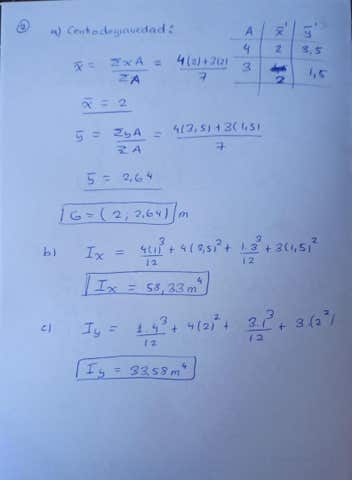 ② a) Centro de gravedad:
A x̄' ȳ'
4 2 3,5
3 2 1,5
x̄ = ΣxA / ΣA = 4(2)+3(2) / 7
x̄ = 2
ȳ = ΣyA / ΣA = 4(3,5)+3(1,5) / 7
ȳ = 2,64
G = (2; 2,64) m
b) Ix = 4(1)³/12 + 4(3,5)² + 1.3³/12 + 3(1,5)²
Ix = 58,33 m⁴
c) Iy = 1.4³/12 + 4(2)² + 3.1³/12 + 3.(2²)
Iy = 33,58 m⁴